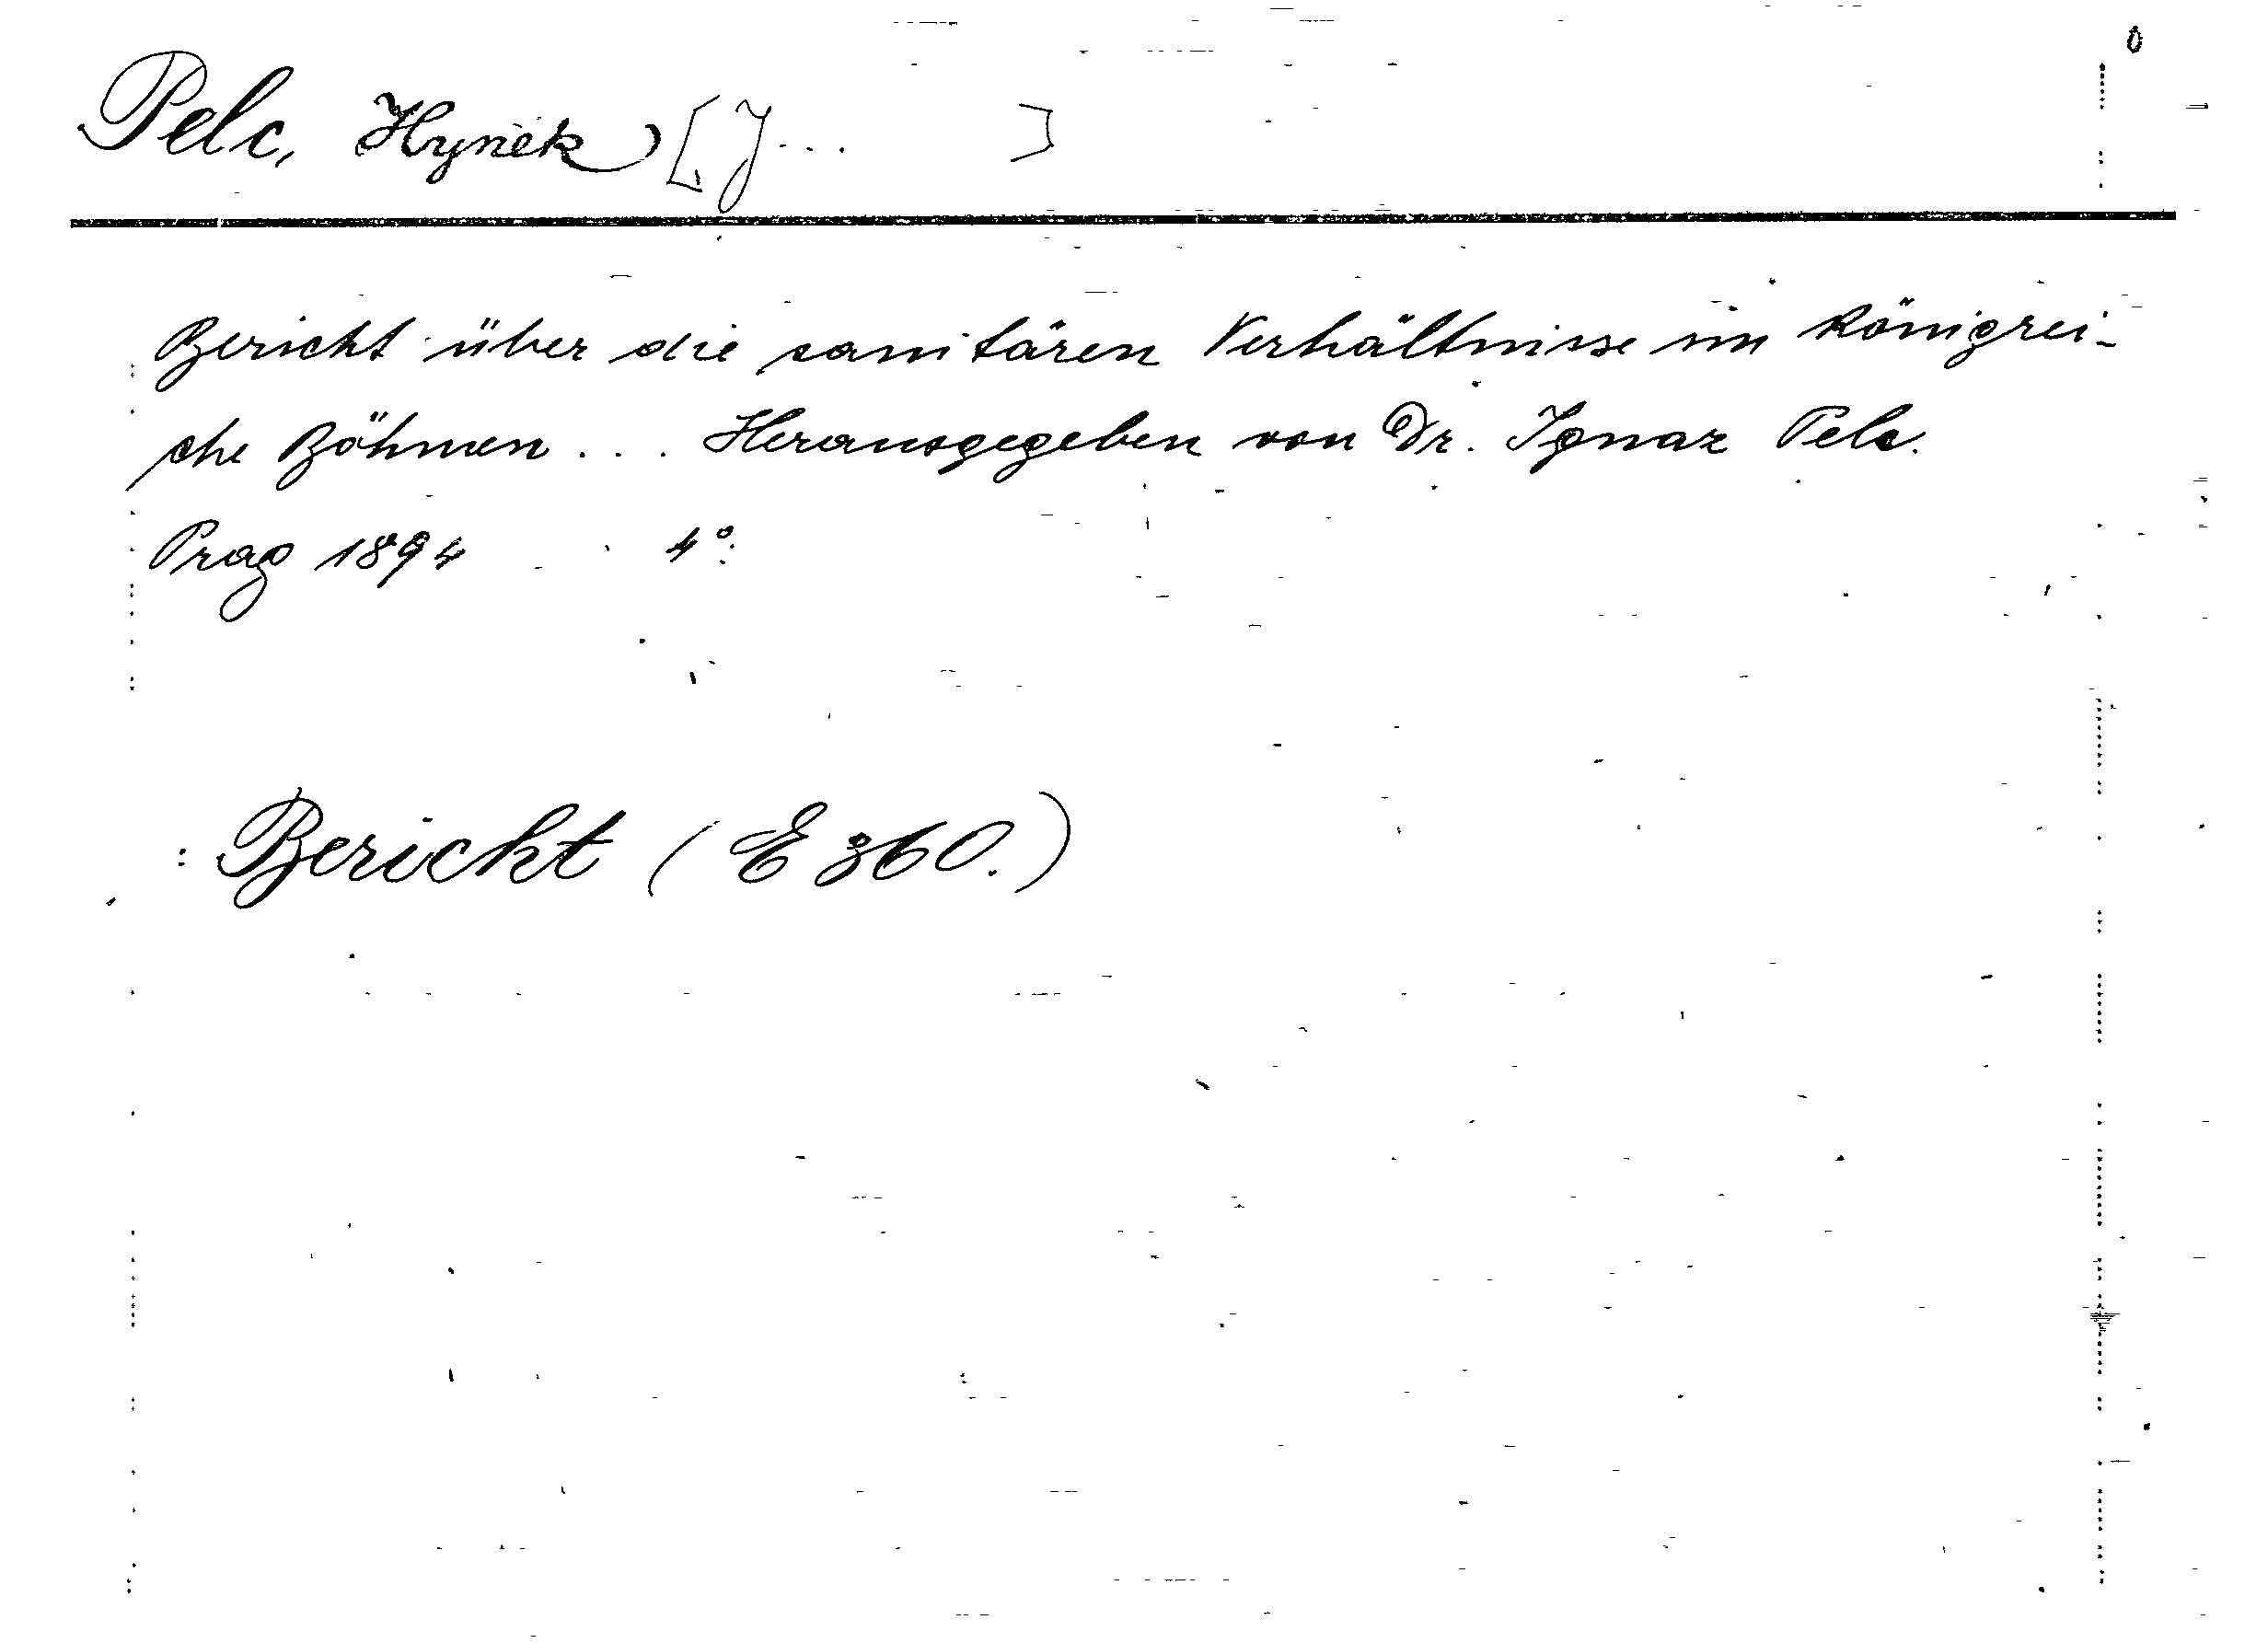 Pelc, Hynek [J... ]
Bericht über die sanitären Verhältnisse im Königrei-
che Böhmen... Herausgegeben von Dr. Ignaz Pelc.
Prag 1894 4°.
: Bericht (E 360.)